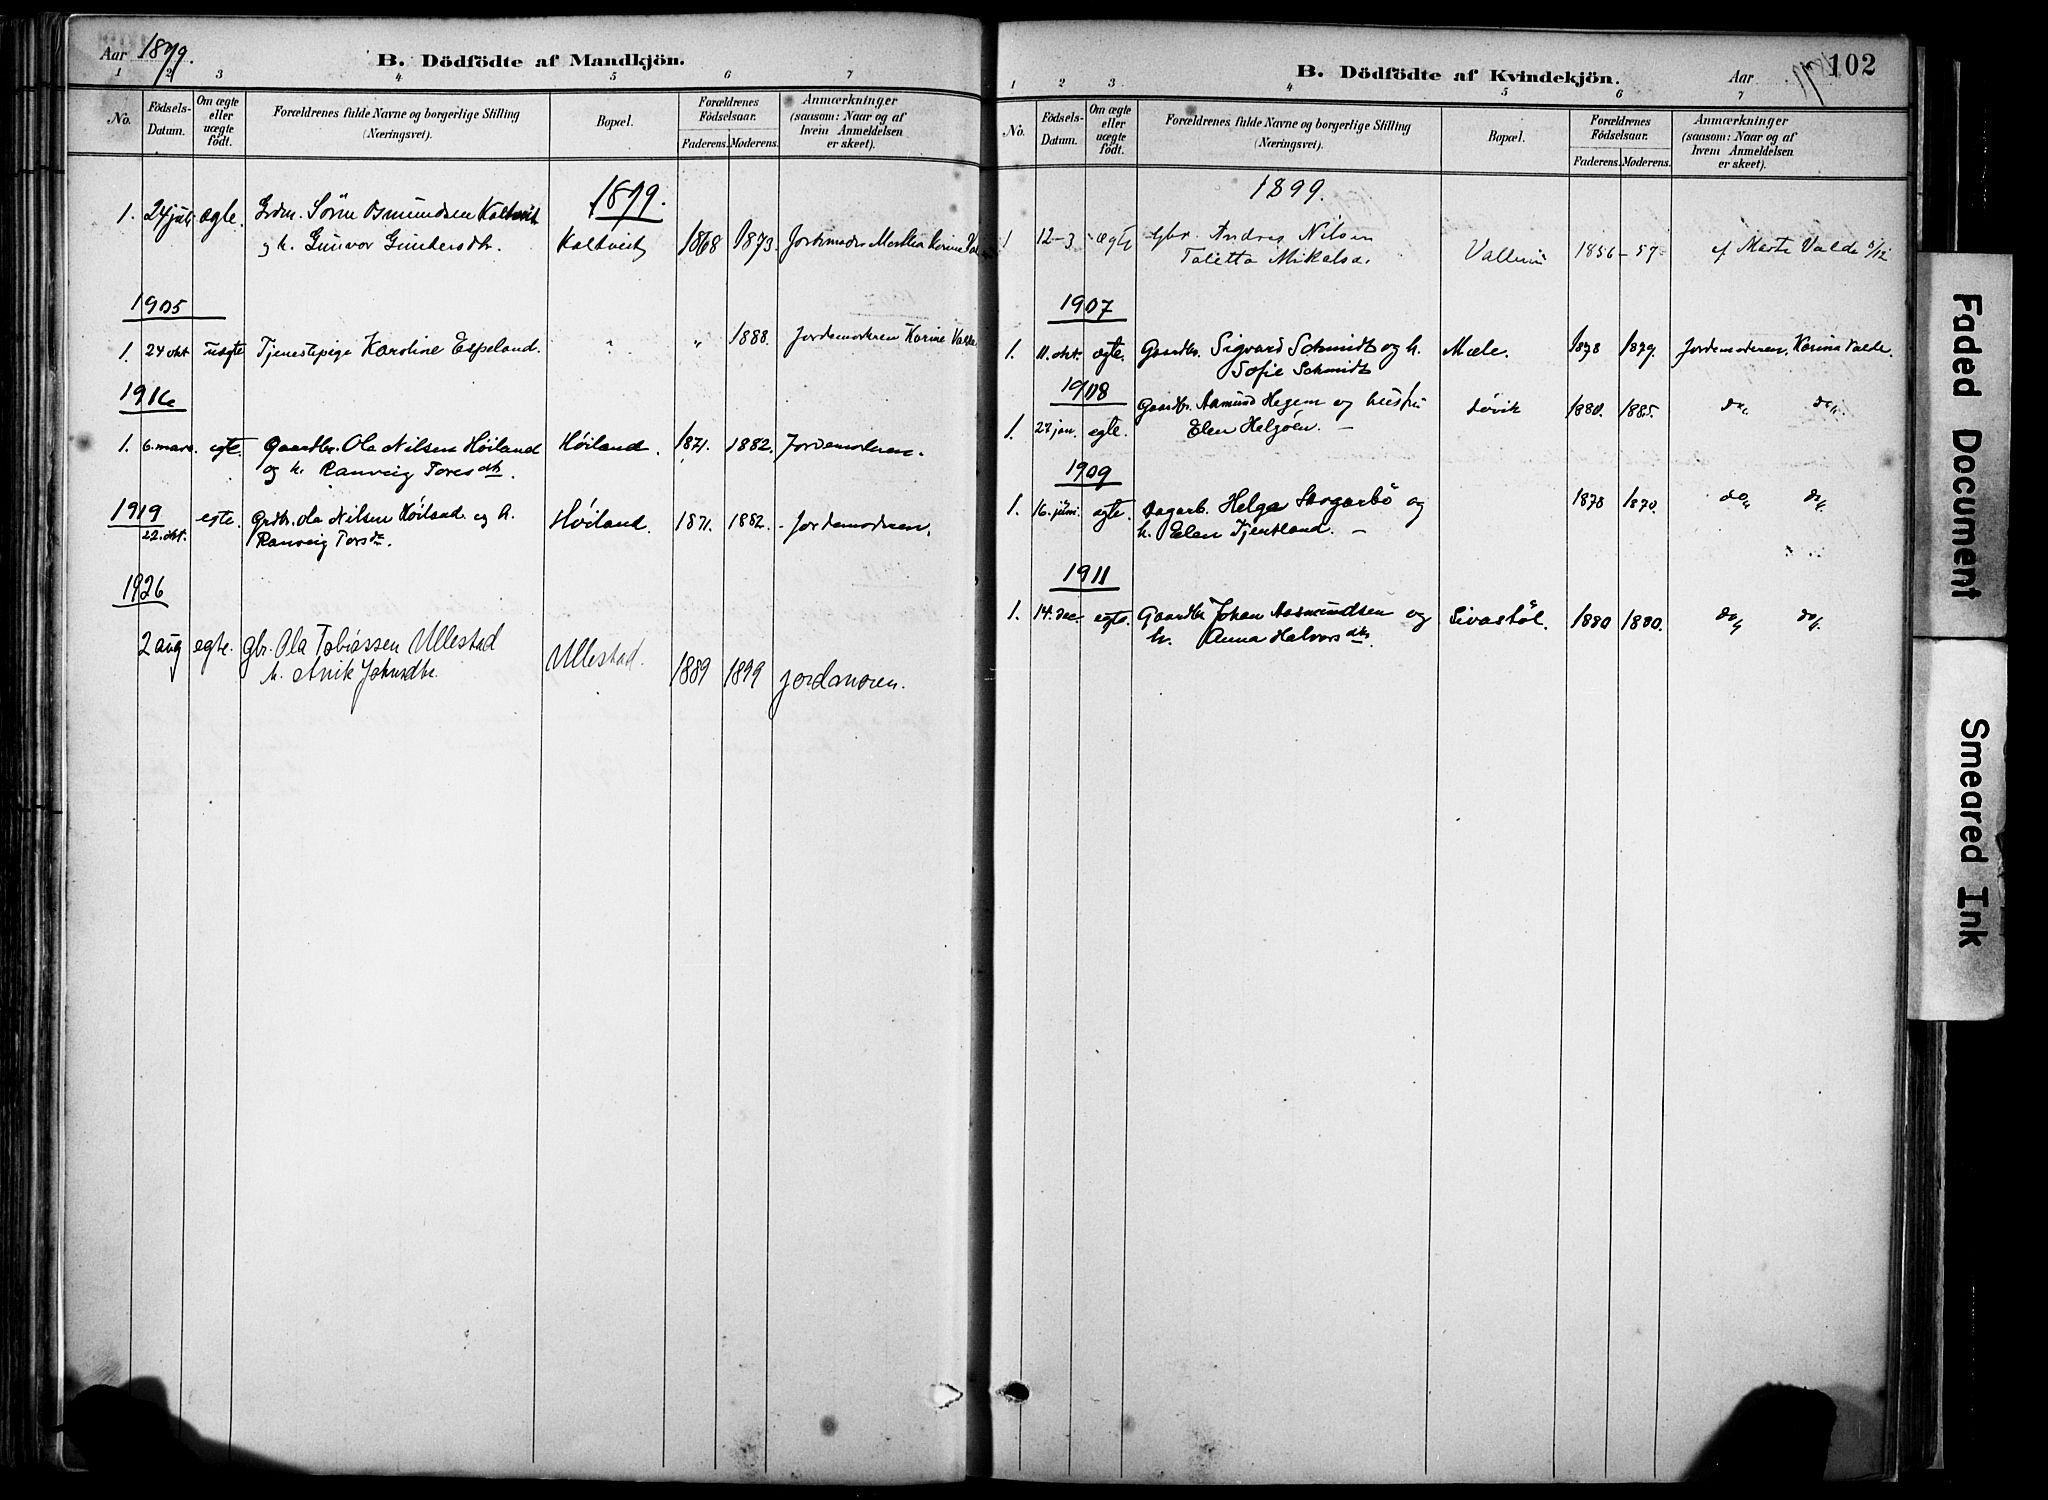 Aar 1899.
B. Dödfödte af Mandkjön.
1 2 3 4 5 6 7
No.
Födsels-
Datum.
Om ægte
eller
uægte
født.
Forældrenes fulde Navne og borgerlige Stilling
(Næringsvei).
Bopæl.
Forældrenes
Födselsaar.
Faderens. Moderens.
Anmærkninger
(saasom: Naar og af
hvem Anmeldelsen
er skeet).
1899.
1. 24 juli ægte. Grdm. Sörne Osmundsen Kaltveit
og h. Gunvor Gundersdtr. Kaltveit 1868 1873 Jordemoder Martha Karine
1905
1. 24 okt uægte Tjenestepige Karoline Espeland. " " 1888. Jordemoderen Karine Valde
1916
1. 6. mars. egte. Gaardbr. Ola Nilsen Höiland Höiland. 1871. 1882. Jordemoderen.
og h. Ranveig Toresdtr.
1919
22. okt. egte. Grdbr. Ola Nilsen Höiland og h. Höiland. 1871. 1882. Jordemoderen.
Ranveig Torsdtr.
1926
2 aug egte. gbr. Ola Tobiassen Ullestad Ullestad. 1889 1899 jordmoren.
h. Anik Johnsdtr.
102
B. Dödfödte af Kvindekjön.
Aar
1 2 3 4 5 6 7
No.
Födsels-
Datum.
Om ægte
eller
uægte
født.
Forældrenes fulde Navne og borgerlige Stilling
(Næringsvei).
Bopæl.
Forældrenes
Födselsaar.
Faderens. Moderens.
Anmærkninger
(saasom: Naar og af
hvem Anmeldelsen
er skeet).
1899.
1 12-3 ægte gbr. Andres Nilsen
Taletta Mikalsd. 1856 - 57 af Marte Valde 5/12
1907
1. 11. okt. ægte. Gaardbr. Sigvard Schmidt og h. Mæle. 1878 1879. Jordemoderen, Karina Valde.
Sofie Schmidt
1908
1. 27 jan. egte. Gaardbr. Aamund Hegem og hustru Lövik 1880. 1885. do, do,
Elen Helgöen. —
1909
1. 16. juni egte. Dagarb. Helge Skogarbö og 1878 1870. do, do,
h. Elen Tjentland. —
1911
1. 14. dec. egte. Gaardbr Johan Aasmundsen og Livastöl. 1880 1880. do, do,
h. Anna Halvorsdtr.
Faded Document
Smeared Ink